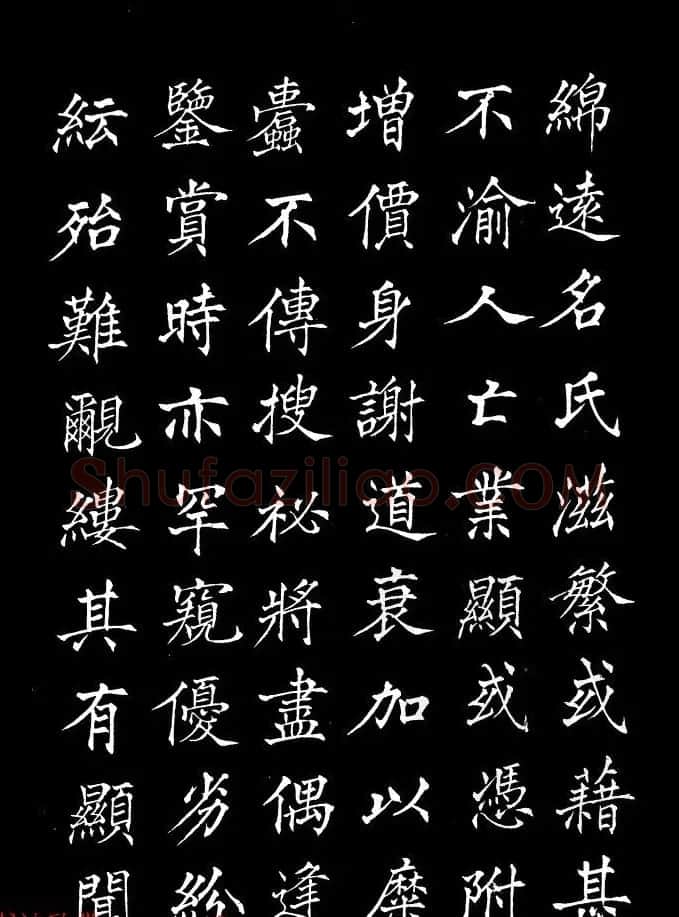 綿遠名氏滋繁或藉其
不渝人亡業顯或憑附
增價身謝道衰加以糜
蠹不傳搜祕將盡偶逢
鑒賞時亦罕窺優劣紛
紜殆難覼縷其有顯聞
Shufaziliao.COM